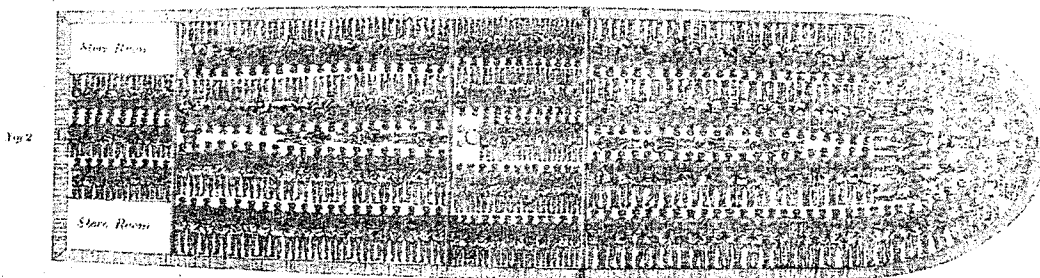 Store Room
Fig 2
Store Room